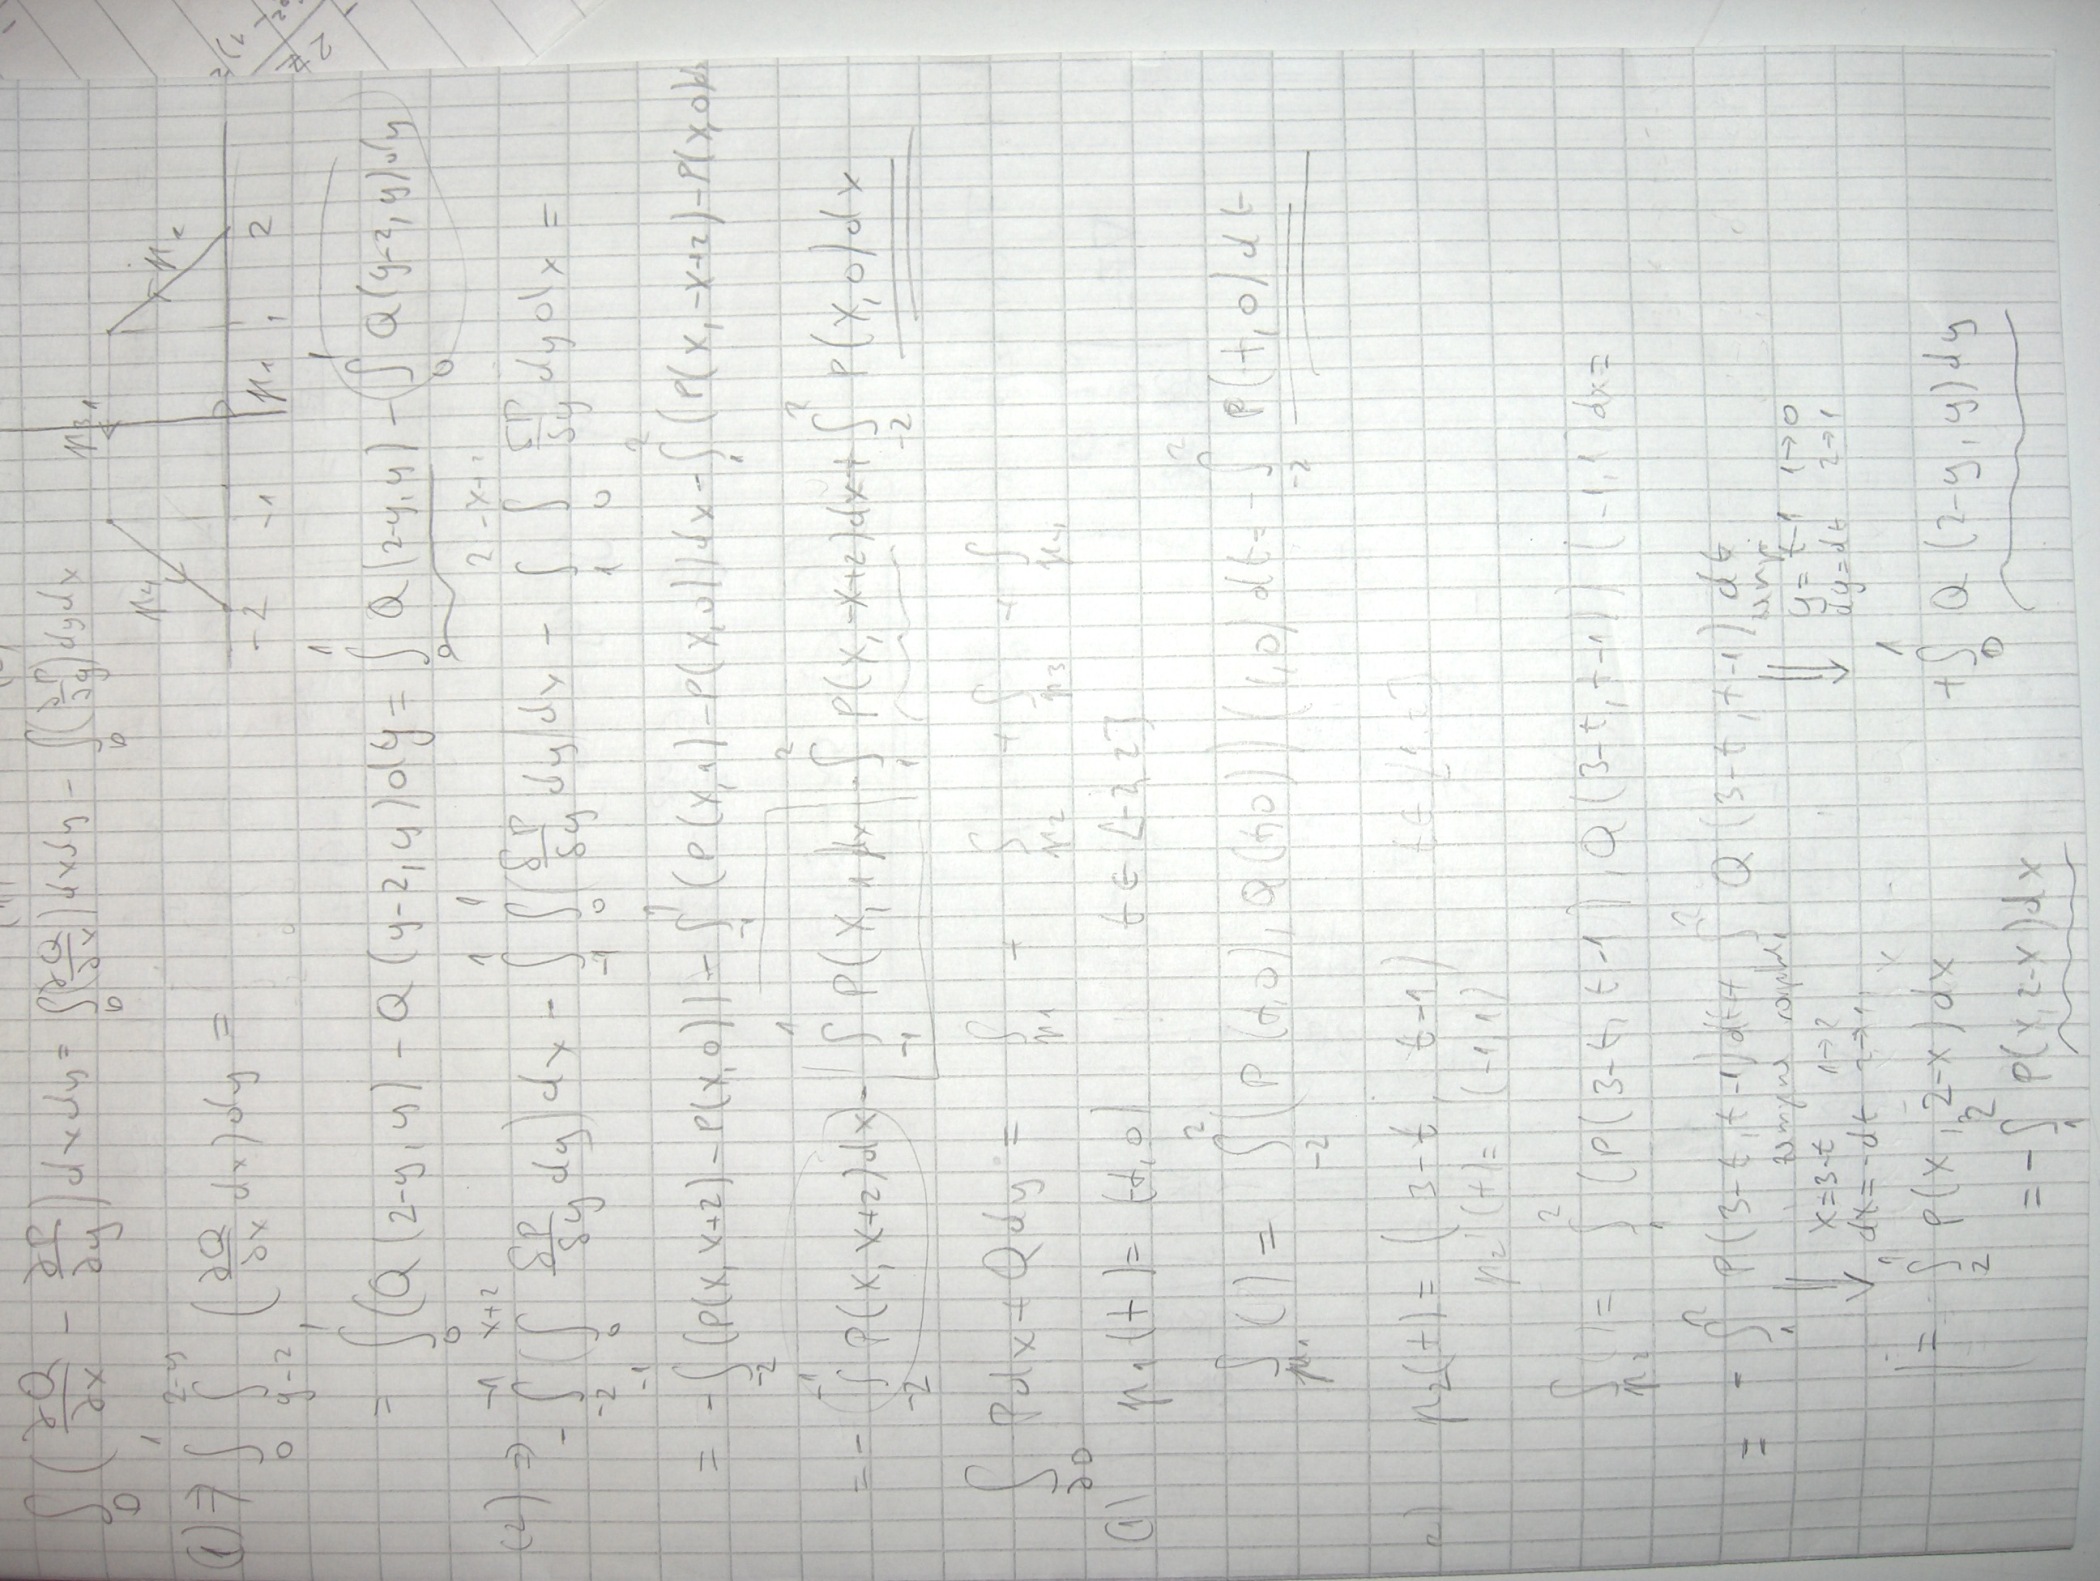 ∬_D (∂Q/∂x - ∂P/∂y) dxdy = ∬_D (∂Q/∂x) dxdy - ∬_D (∂P/∂y) dydx
μ4 μ3 1 μ2
-2 -1 μ1 1 2
(1) ⇒ ∫_0^1 ∫_{y-2}^{2-y} (∂Q/∂x dx) dy =
= ∫_0^1 (Q(2-y, y) - Q(y-2, y) dy = ∫_0^1 Q(2-y, y) - ∫_0^1 Q(y-2, y) dy
(2) ⇒ - ∫_{-2}^{-1} (∫_0^{x+2} ∂P/∂y dy) dx - ∫_{-1}^1 (∫_0^1 ∂P/∂y dy) dx - ∫_1^2 ∫_0^{-x+2} ∂P/∂y dy dx =
= - ∫_{-2}^{-1} (P(x, x+2) - P(x, 0)) - ∫_{-1}^1 (P(x, 1) - P(x, 0)) dx - ∫_1^2 (P(x, -x+2) - P(x, 0)
= - ∫_{-2}^{-1} P(x, x+2) dx - ∫_{-1}^1 P(x, 1) dx - ∫_1^2 P(x, -x+2) dx + ∫_{-2}^2 P(x, 0) dx
∫_{∂D} P dx + Q dy = ∫_{μ1} + ∫_{μ2} + ∫_{μ3} + ∫_{μ4}
(1) μ1(t) = (t, 0) t ∈ [-2, 2]
∫_{μ1} () = ∫_{-2}^2 (P(t, 0), Q(t, 0)) (1, 0) dt = ∫_{-2}^2 P(t, 0) dt
2) μ2(t) = (3-t, t-1) t ∈ [1, 2]
μ2'(t) = (-1, 1)
∫_{μ2} () = ∫_1^2 (P(3-t, t-1), Q(3-t, t-1)) (-1, 1) dx =
= - ∫_1^2 P(3-t, t-1) dt + ∫_1^2 Q(3-t, t-1) dt
x = 3-t 1→2
dx = -dt 2→1
y = t-1 1→0
dy = dt 2→1
= ∫_2^1 P(x, 2-x) dx + ∫_0^1 Q(2-y, y) dy
= - ∫_1^2 P(x, 2-x) dx